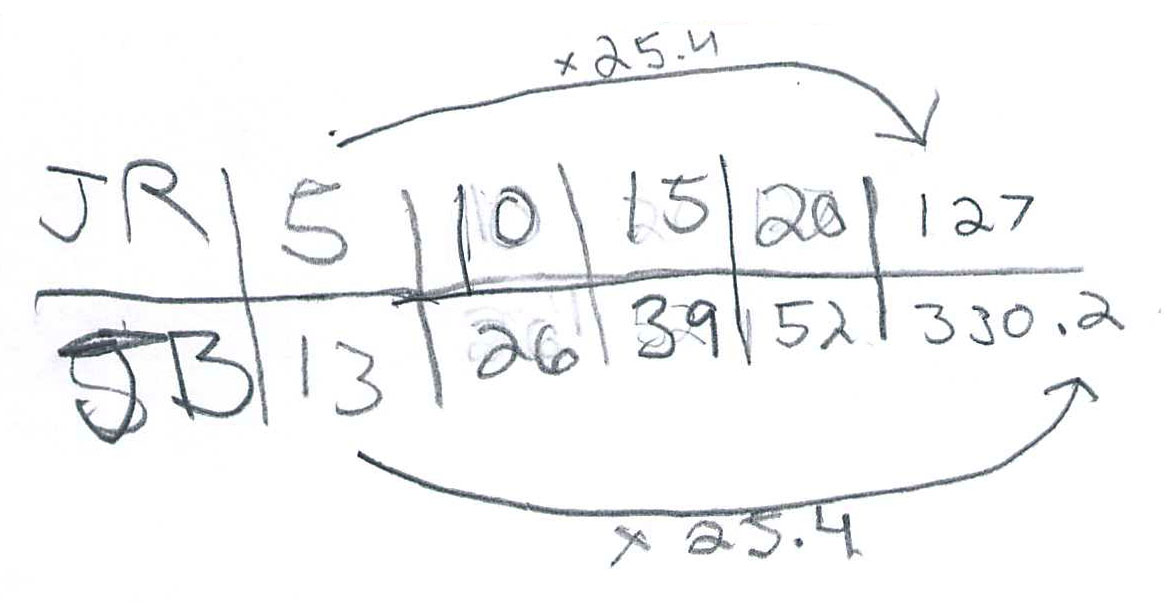 x 25.4
JR 5 10 15 20 127
JB 13 26 39 52 330.2
x 25.4